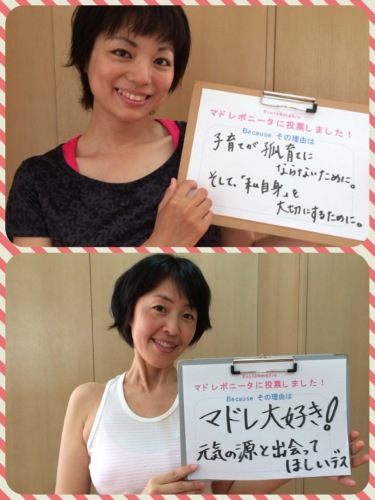 #vote4madre
マドレボニータに投票しました！
Because その理由は
子育てが孤育てに
ならないために。
そして、「私自身」を
大切にするために。
#vote4madre
マドレボニータに投票しました！
Because その理由は
マドレ大好き!
元気の源と出会って
ほしいデス